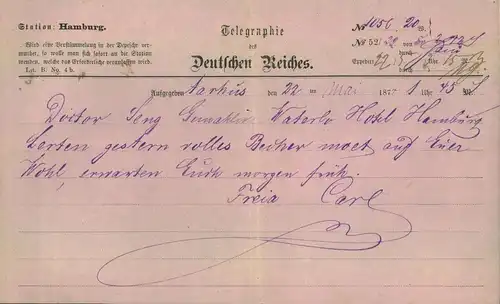 Station: Hamburg.
Wird eine Verstümmelung in der Depesche ver-
muthet, so wolle man sich sofort an die Station
wenden, welche das Erforderliche veranlassen wird.
Lat. B. No. 4 b.
Telegraphie
des
Deutschen Reiches.
No. 1056. 20 W.
No. 52/22 von
durch
Expedirt 22/5 Uhr 15 M.
durch
Aufgegeben Aarhus den 22 ten Mai 1877 1 Uhr 45 M.
Doctor Seng Waterlo Hotel Hamburg
gestern volles Becher moet auf Euer
Wohl, erwarten Euch morgen früh.
Freia Carl